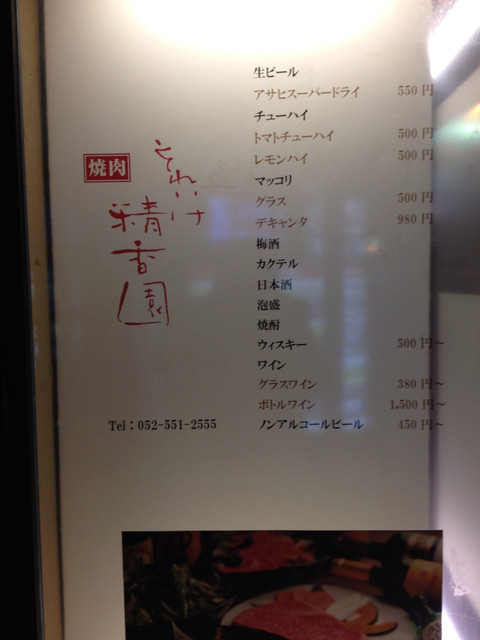 焼肉
それいけ
精香園
Tel：052-551-2555
生ビール
アサヒスーパードライ 550 円
チューハイ
トマトチューハイ 500 円
レモンハイ 500 円
マッコリ
グラス 500 円
デキャンタ 980 円
梅酒
カクテル
日本酒
泡盛
焼酎
ウィスキー 500 円～
ワイン
グラスワイン 380 円～
ボトルワイン 1,500 円～
ノンアルコールビール 450 円～